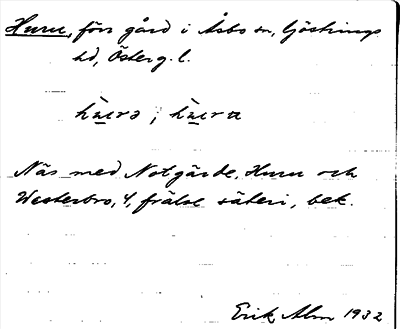 Huru, förs gård i Åsbo sn, Göstrings
hd, Österg. l.
Näs med Notgärde, Huru och
Westerbro, 4, frälse säteri, bek.
Erik Alm 1932